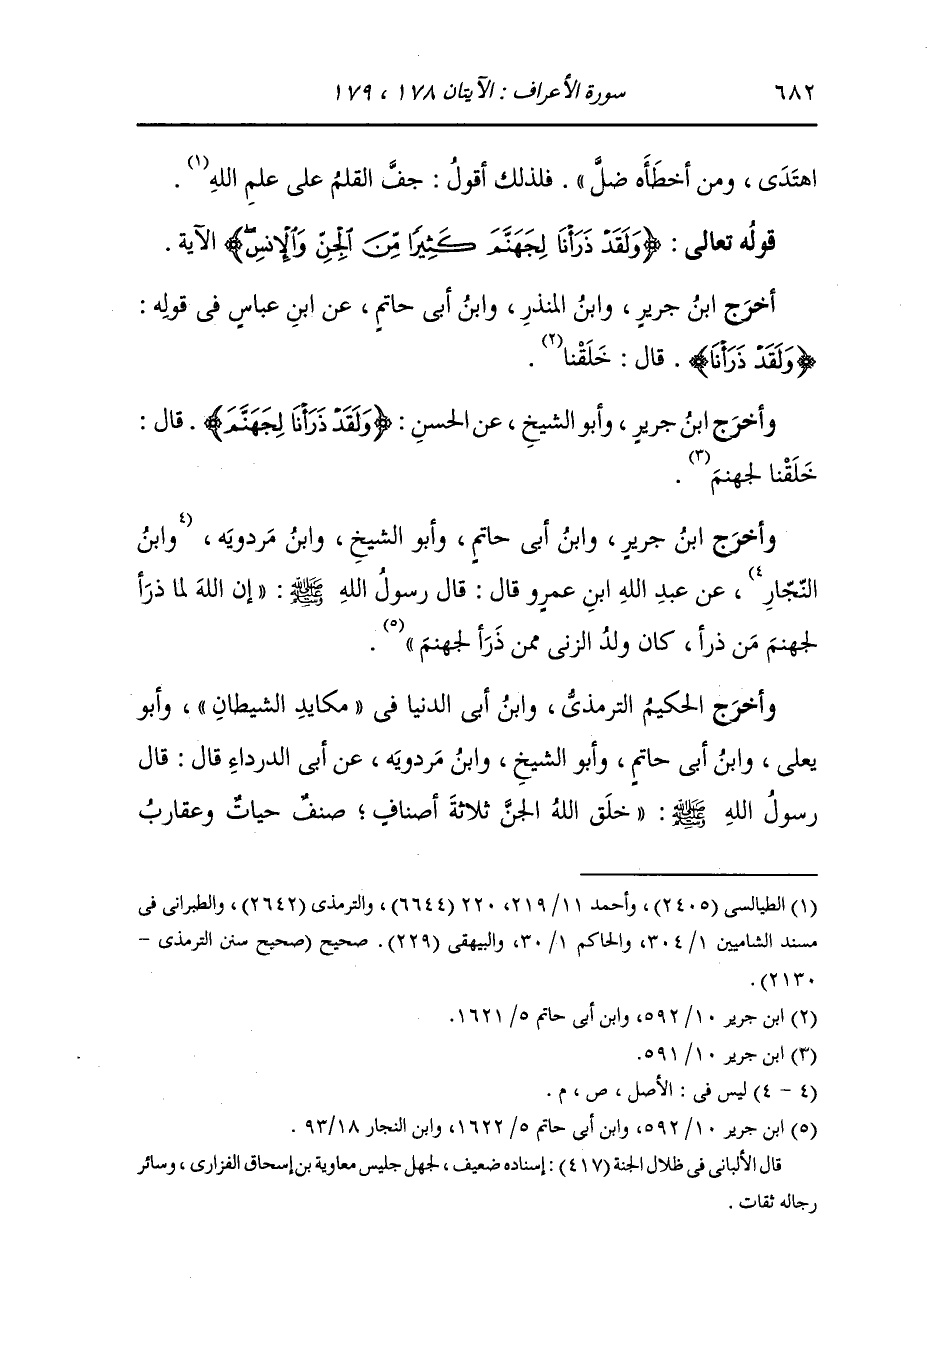 ٦٨٢ سورة الأعراف : الآيتان ١٧٨ ، ١٧٩
اهتَدَى ، ومن أخطَأَه ضلَّ » . فلذلك أقولُ : جفَّ القلمُ على علمِ اللهِ(١) .
قولُه تعالى : ﴿وَلَقَدْ ذَرَأْنَا لِجَهَنَّمَ كَثِيرًا مِّنَ ٱلْجِنِّ وَٱلْإِنسِۖ﴾ الآية .
أخرَج ابنُ جريرٍ ، وابنُ المنذرِ ، وابنُ أبى حاتمٍ ، عن ابنِ عباسٍ فى قولِه :
﴿وَلَقَدْ ذَرَأْنَا﴾ . قال : خَلَقْنا(٢) .
وأخرَج ابنُ جريرٍ ، وأبو الشيخِ ، عن الحسنِ : ﴿وَلَقَدْ ذَرَأْنَا لِجَهَنَّمَ﴾ . قال :
خَلَقْنا لجهنمَ(٣) .
وأخرَج ابنُ جريرٍ ، وابنُ أبى حاتمٍ ، وأبو الشيخِ ، وابنُ مَردويَه ، (٤وابنُ
النّجّارِ٤) ، عن عبدِ اللهِ ابنِ عمرٍو قال : قال رسولُ اللهِ ﷺ : « إن اللهَ لما ذرَأ
لجهنمَ مَن ذرأ ، كان ولدُ الزنى ممن ذَرَأ لجهنمَ »(٥) .
وأخرَج الحكيمُ الترمذىُّ ، وابنُ أبى الدنيا فى « مكايدِ الشيطانِ » ، وأبو
يعلى ، وابنُ أبى حاتمٍ ، وأبو الشيخِ ، وابنُ مَردويَه ، عن أبى الدرداءِ قال : قال
رسولُ اللهِ ﷺ : « خلَق اللهُ الجنَّ ثلاثةَ أصنافٍ ؛ صنفٌ حياتٌ وعقاربُ
(١) الطيالسى (٢٤٠٥) ، وأحمد ١١/ ٢١٩، ٢٢٠ (٦٦٤٤) ، والترمذى (٢٦٤٢) ، والطبرانى فى
مسند الشاميين ١/ ٣٠٤، والحاكم ١/ ٣٠، والبيهقى (٢٢٩) . صحيح (صحيح سنن الترمذى –
٢١٣٠) .
(٢) ابن جرير ١٠/ ٥٩٢، وابن أبى حاتم ٥/ ١٦٢١.
(٣) ابن جرير ١٠/ ٥٩١.
(٤ – ٤) ليس فى : الأصل ، ص ، م .
(٥) ابن جرير ١٠/ ٥٩٢، وابن أبى حاتم ٥/ ١٦٢٢، وابن النجار ٩٣/١٨ .
قال الألبانى فى ظلال الجنة (٤١٧) : إسناده ضعيف ، لجهل جليس معاوية بن إسحاق الفزارى ، وسائر
رجاله ثقات .